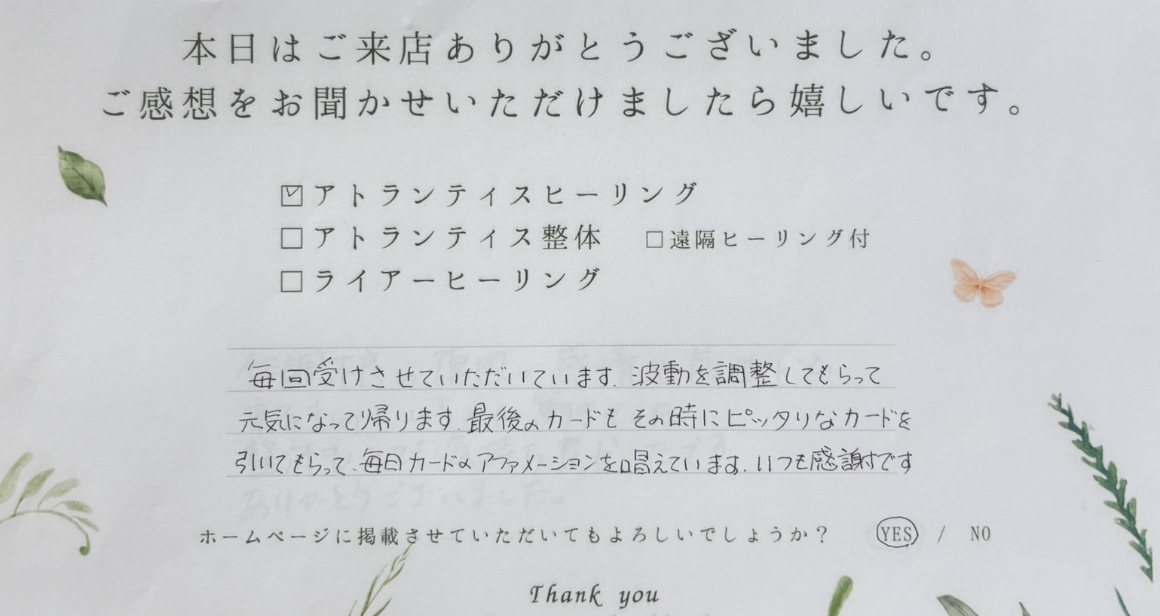 本日はご来店ありがとうございました。
ご感想をお聞かせいただけましたら嬉しいです。
☑アトランティスヒーリング
□アトランティス整体 □遠隔ヒーリング付
□ライアーヒーリング
毎回受けさせていただいています。波動を調整してもらって
元気になって帰ります。最後のカードもその時にピッタリなカードを
引いてもらって、毎日カードのアファメーションを唱えています。いつも感謝です
ホームページに掲載させていただいてもよろしいでしょうか？ YES / NO
Thank you